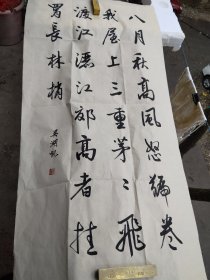 八月秋高風怒號卷
我屋上三重茅〻飛
渡江灑江郊高者挂
罥長林梢